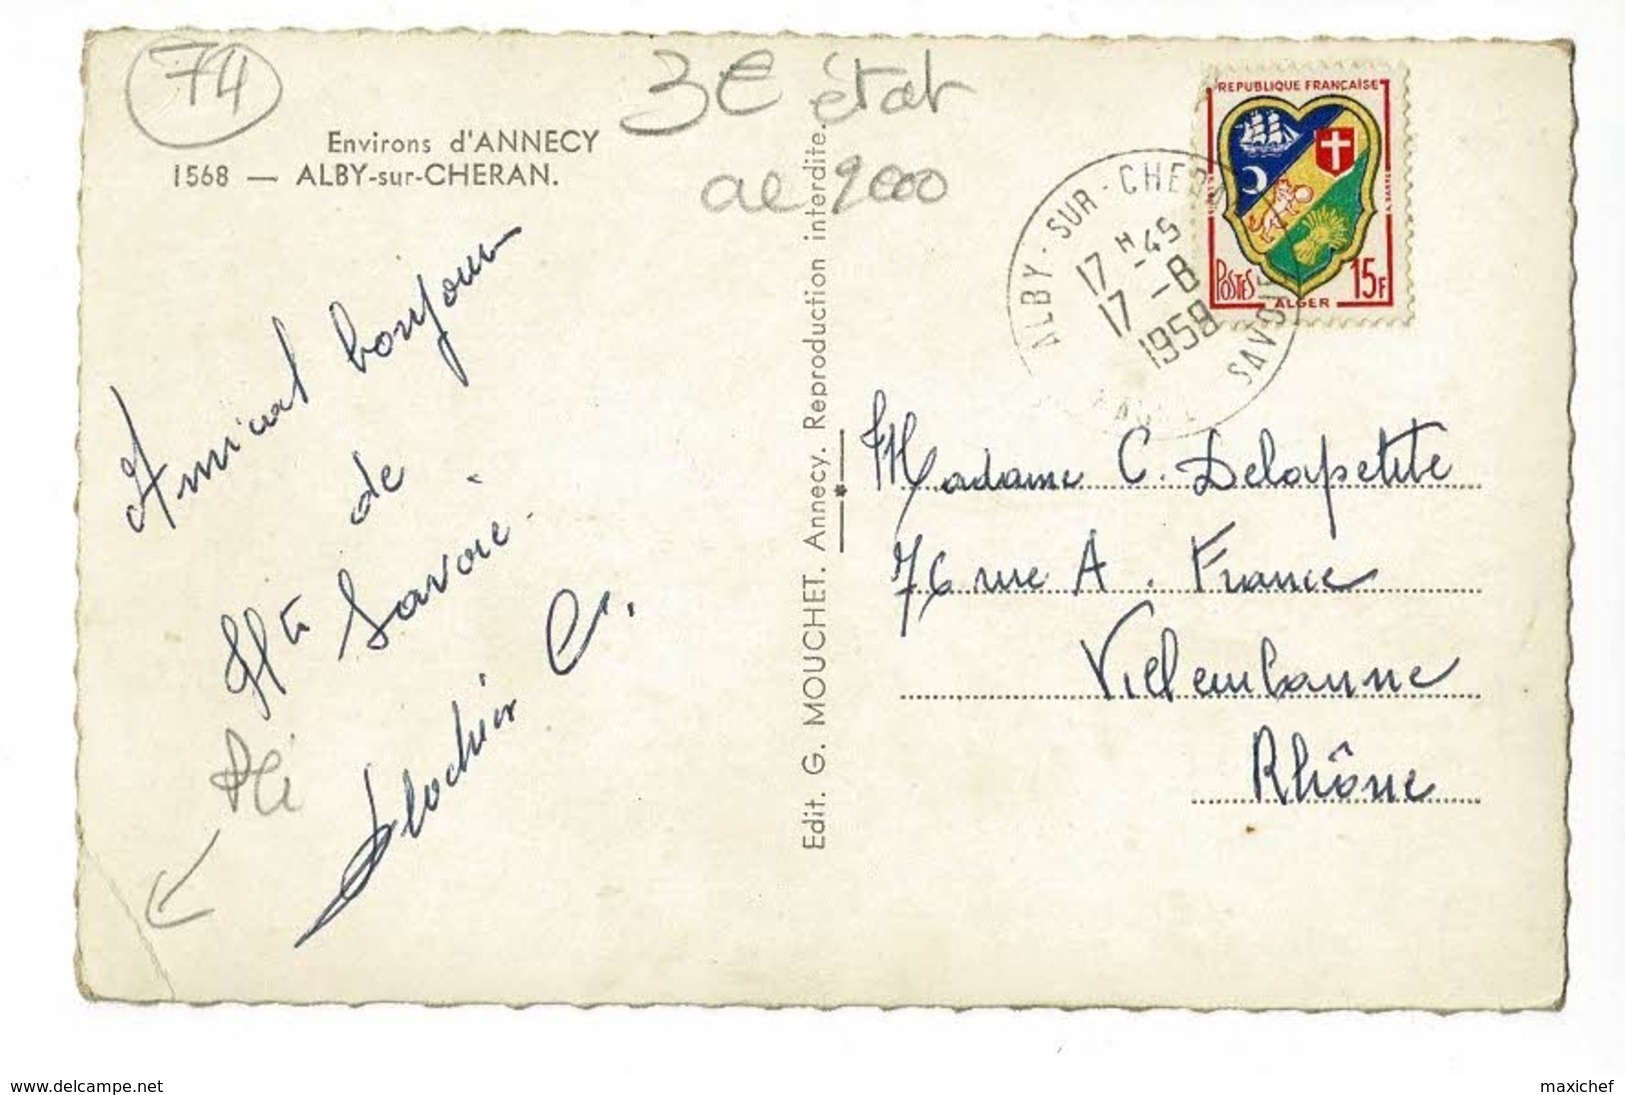 74
3€ état
Environs d'ANNECY
1568 — ALBY-sur-CHERAN.
Amical bonjour
de
Hte Savoie.
C.
Pli
Edit. G. MOUCHET. Annecy. Reproduction interdite.
REPUBLIQUE FRANÇAISE
POSTES
ALGER
15F
ALBY-SUR-CHERAN
17H-45
17-8
1958
SAVOIE
Madame C. Delapetite
76 rue A. France
Villeurbanne
Rhône
www.delcampe.net
maxichef